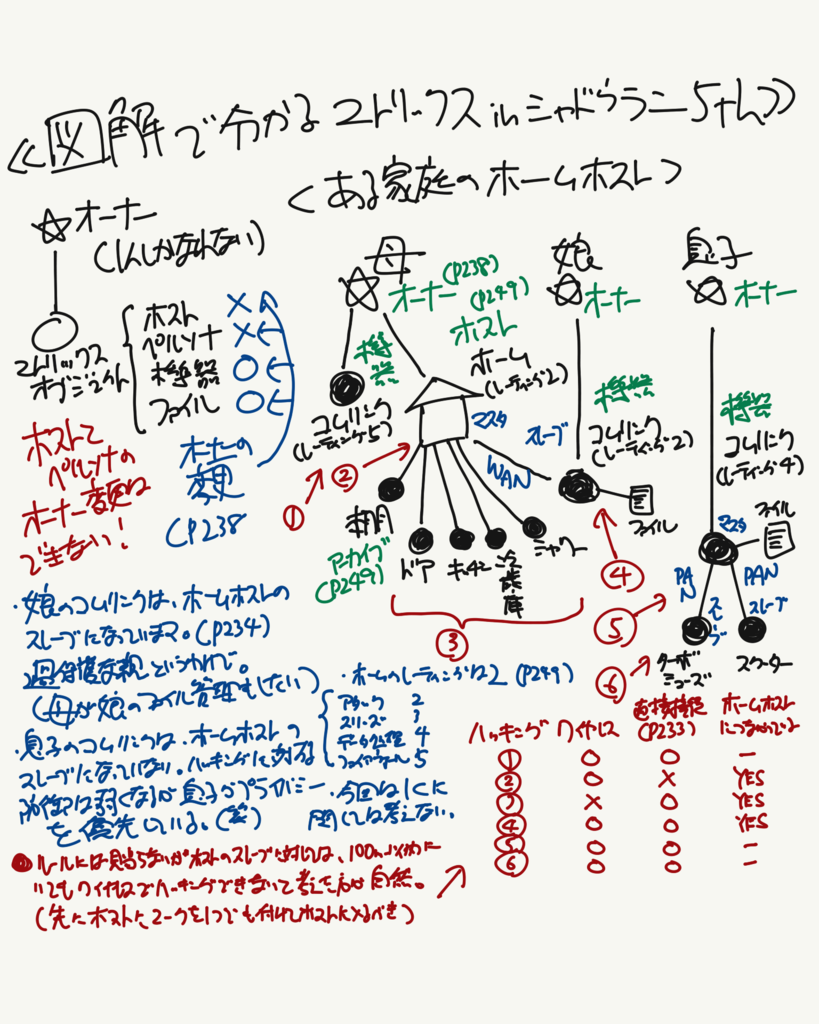 ≪図解で分かるマトリックス in シャドウラン5th≫
<ある家庭のホームホスト>
オーナー
(1人しかなれない)
マトリックス
オブジェクト
ホスト ×
ペルソナ ×←
機器 ○←
ファイル ○←
オーナーの
変更
(P238
ホストと
ペルソナの
オーナー変更は
できない!
母
オーナー(P238)
(P249)
ホスト
ホーム
(レーティング2)
機器
コムリンク
(レーティング5)
マスタ
スレーブ
WAN
①
②
照明
アーカイブ
(P249)
ドア
キッチン
冷蔵庫
シャワー
③
娘
オーナー
機器
コムリンク
(レーティング2)
ファイル
④
息子
オーナー
機器
コムリンク
(レーティング4)
マスタ
ファイル
PAN
PAN
スレーブ
スレーブ
⑤
⑥
ターボ
ミューズ
スクーター
・娘のコムリンクは、ホームホストの
スレーブになっています。(P234)
過保護な親というわけで。
(母が娘のファイル管理もしたい)
・息子のコムリンクは、ホームホストの
スレーブになっていない。ハッキングに対する
防御は弱くなるが息子がプライバシー
を優先している。(笑)
・ホームのレーティングは2 (P249)
アタック 2
スリーズ 3
データ処理 4
ファイヤウォール 5
・今回はICに
関しては考えない。
ハッキング ワイヤレス 直接接続(P233) ホームホストにつながっている
① ○ ○ ー
② ○ × YES
③ × ○ YES
④ ○ ○ YES
⑤ ○ ○ ー
⑥ ○ ○ ー
●ルールには見当らないがホストのスレーブに対しては、100m以内に
いてもワイヤレスでハッキングできないと考えた方が自然。
(先にホストにマークを1つでも付けてホストに入るべき)